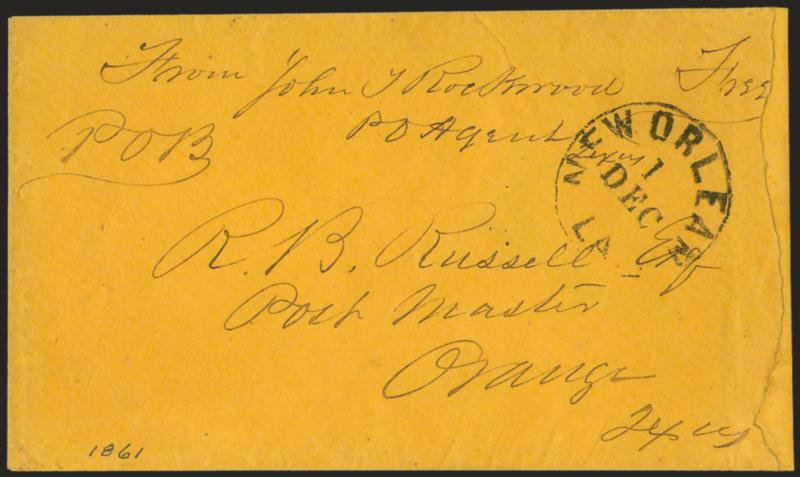 From John T Rockwood Free
P O B
P O Agent
Texas
NEW ORLEANS
LA
1
DEC
R. B. Russell Esq
Post Master
Orange
Texas
1861